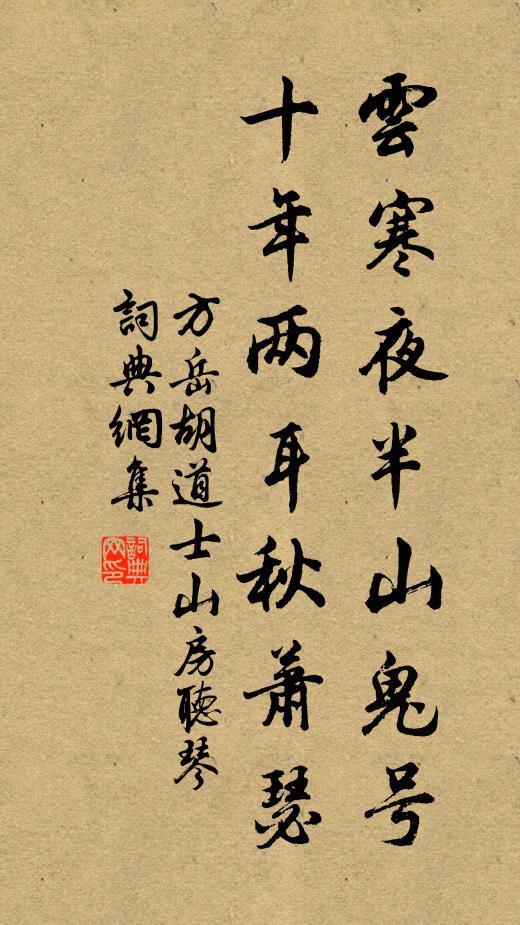 雲寒夜半山鬼号
十年两耳秋萧瑟
方岳胡道士山房聽琴
詞典網集
詞典
网印